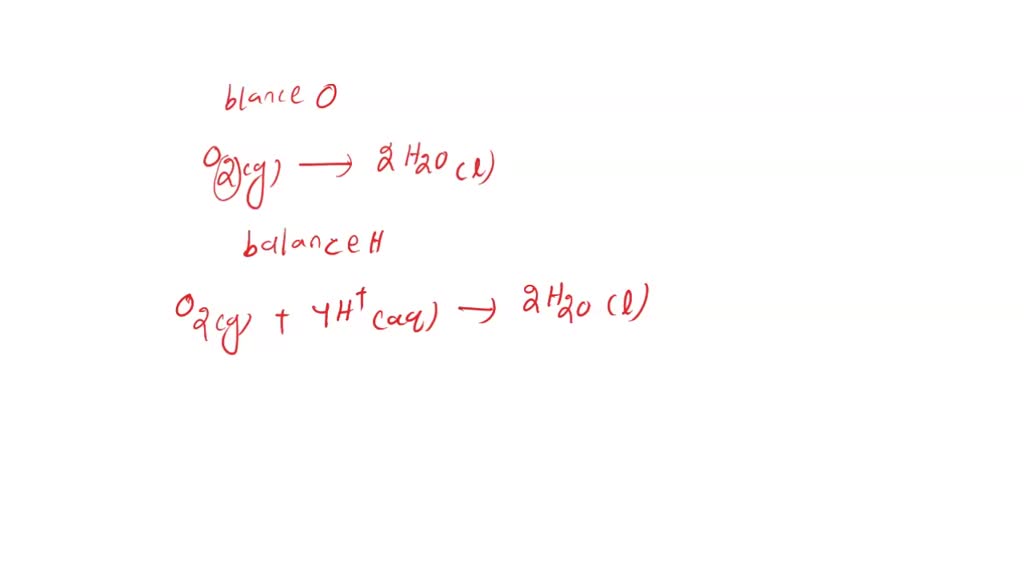 blance O
O2(g) → 2H2O(l)
balance H
O2(g) + 4H+(aq) → 2H2O(l)